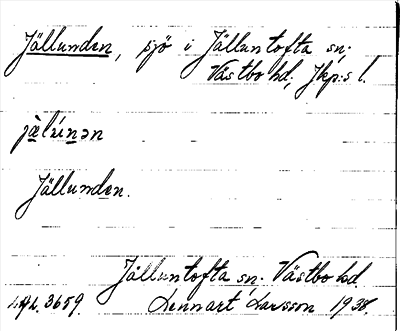 Jällunden, sjö i Jälluntofta sn.
Västbo hd, Jkp:s l.
jä̀lúnən
Jällunden.
Jälluntofta sn. Västbo hd
3659. Lennart Larsson 1938.